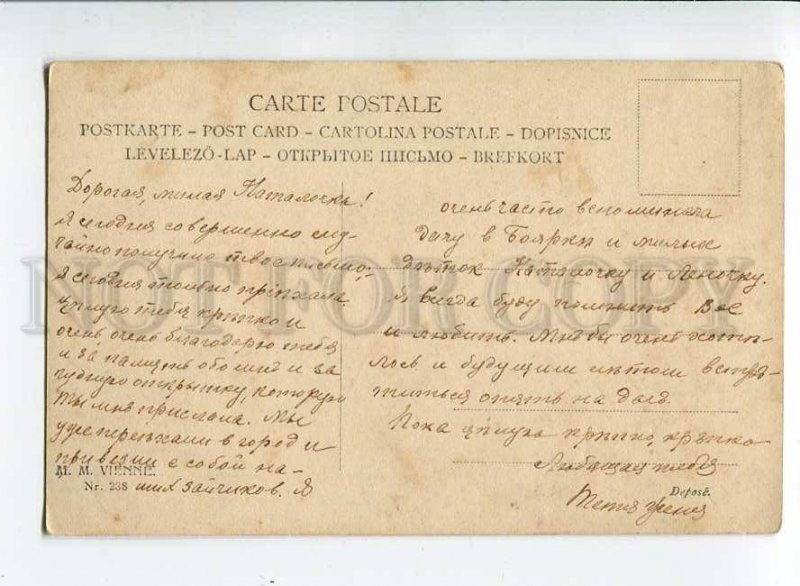 CARTE POSTALE
POSTKARTE – POST CARD – CARTOLINA POSTALE – DOPISNICE
LEVELEZŐ-LAP – ОТКРЫТОЕ ПИСЬМО – BREFKORT
Дорогая, милая Наталочка!
Я сегодня совершенно слу-
чайно получила твое письмо,
я сегодня только пріѣхала.
Цѣлую тебя крѣпко и
очень очень благодарю тебя
и за память обо мнѣ и за
чудную открытку, которую
ты мнѣ прислала. Мы
уже переѣхали в город и
привезли с собой на-
ших зайчиков. Я
M. M. VIENNE.
Nr. 238
очень часто вспоминаю
дачу в Боярки и милых
дѣток Наталочку и Леночку.
Я всегда буду помнить Вас
и любить. Мнѣ бы очень хотѣ-
лось и будущим лѣтом встрѣ-
титься опять на дачѣ.
Пока цѣлую крѣпко, крѣпко
Любящая тебя
Тетя Женя
Deposé.
NOT FOR COPY